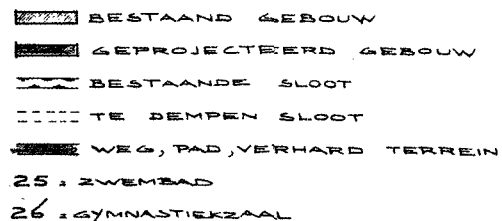 BESTAAND GEBOUW
GEPROJECTEERD GEBOUW
BESTAANDE SLOOT
TE DEMPEN SLOOT
WEG, PAD, VERHARD TERREIN
25 = ZWEMBAD
26 = GYMNASTIEKZAAL